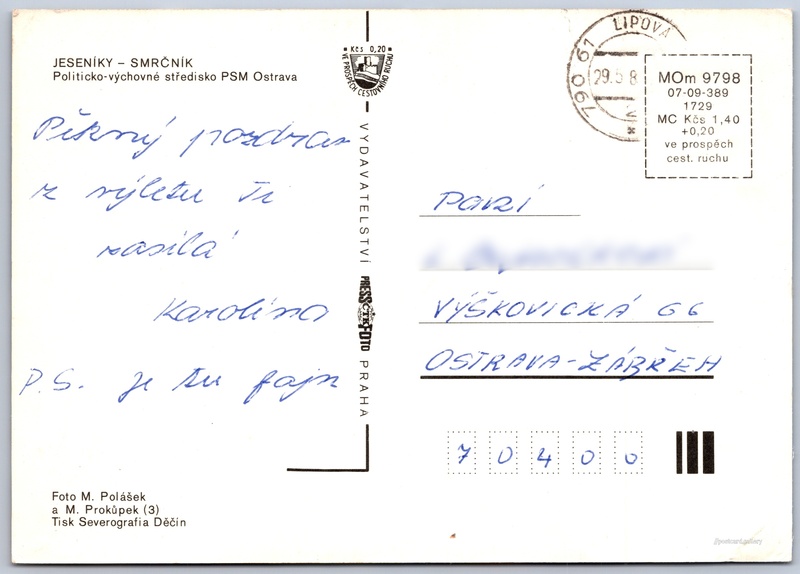 JESENÍKY – SMRČNÍK
Politicko-výchovné středisko PSM Ostrava
Pěkný pozdrav
z výletu Ti
zasílá
Karolína
P.S. je tu fajn
Foto M. Polášek
a M. Prokůpek (3)
Tisk Severografia Děčín
Kčs 0,20
VE PROSPĚCH CESTOVNÍHO RUCHU
VYDAVATELSTVÍ PRESSFOTO PRAHA
ČTK
790 61 LIPOVÁ
29.5.8
MOm 9798
07-09-389
1729
MC Kčs 1,40
+0,20
ve prospěch
cest. ruchu
Paní
VÝŠKOVICKÁ 66
OSTRAVA-ZÁBŘEH
70400